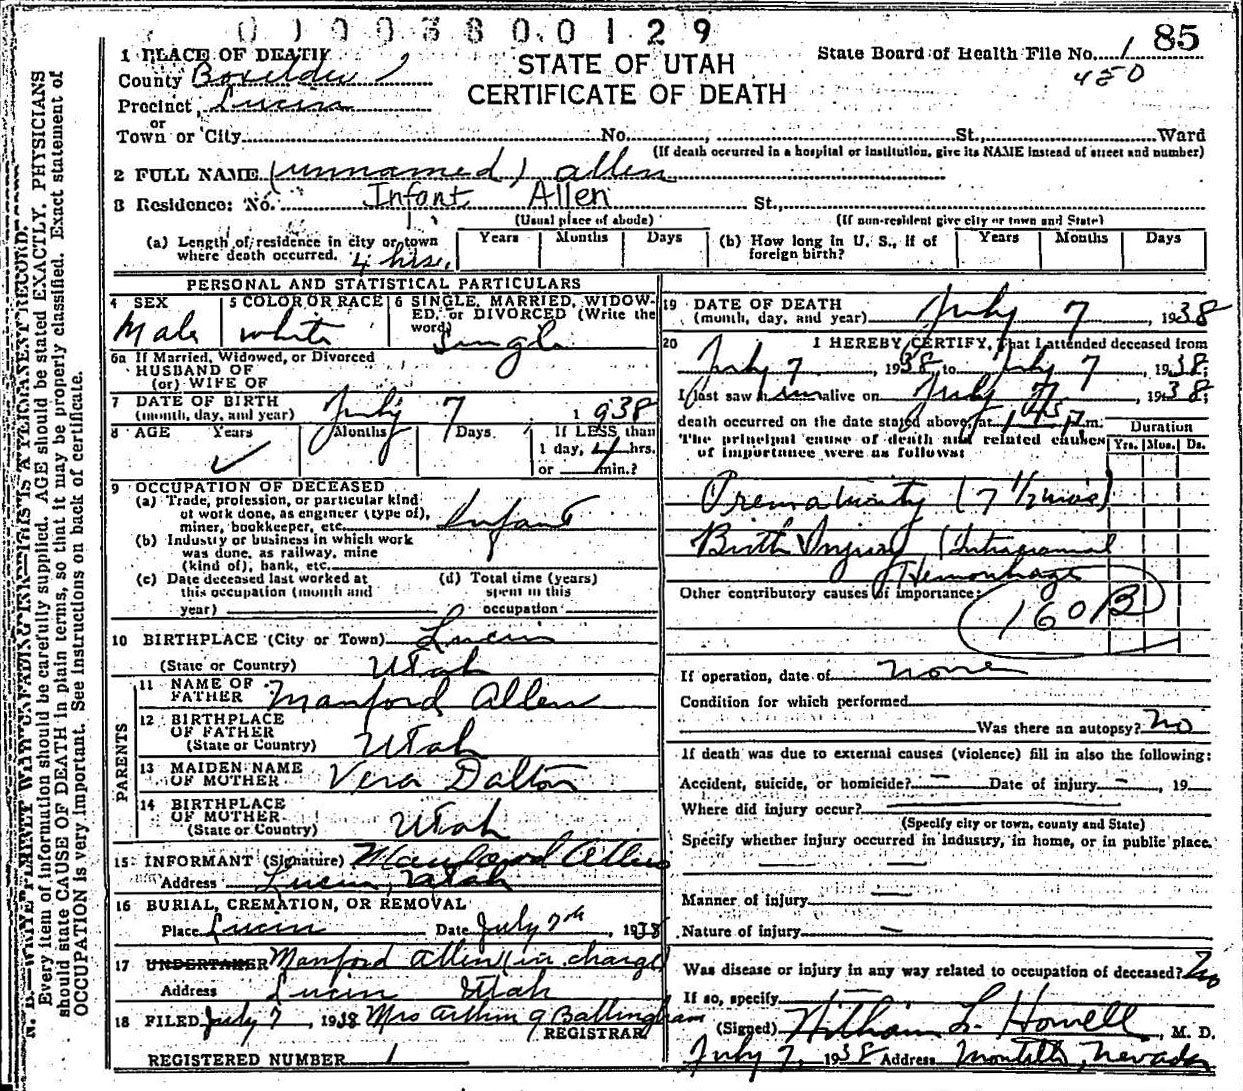 0 1 0 0 3 8 0 0 1 2 9
85
1 PLACE OF DEATH
STATE OF UTAH
State Board of Health File No. 1
450
County Boxelder
CERTIFICATE OF DEATH
Precinct Lucin
or
Town or City No. St., Ward
(If death occurred in a hospital or institution, give its NAME instead of street and number)
2 FULL NAME (unnamed) allen
3 Residence: No. Infant Allen St.,
(Usual place of abode) (If non-resident give city or town and State)
(a) Length of residence in city or town where death occurred. 4 hrs. Years Months Days
(b) How long in U. S., if of foreign birth? Years Months Days
PERSONAL AND STATISTICAL PARTICULARS
4 SEX Male
5 COLOR OR RACE white
6 SINGLE, MARRIED, WIDOWED, or DIVORCED (Write the word) Single
6a If Married, Widowed, or Divorced
HUSBAND OF
(or) WIFE OF
7 DATE OF BIRTH
(month, day, and year) July 7 1938
8 AGE Years Months Days If LESS than
1 day, 4 hrs.
or min.?
9 OCCUPATION OF DECEASED
(a) Trade, profession, or particular kind
of work done, as engineer (type of),
miner, bookkeeper, etc. Infant
(b) Industry or business in which work
was done, as railway, mine
(kind of), bank, etc.
(c) Date deceased last worked at
this occupation (month and
year)
(d) Total time (years)
spent in this
occupation
10 BIRTHPLACE (City or Town) Lucin
(State or Country) Utah
PARENTS
11 NAME OF
FATHER Manford Allen
12 BIRTHPLACE
OF FATHER
(State or Country) Utah
13 MAIDEN NAME
OF MOTHER Vera Dalton
14 BIRTHPLACE
OF MOTHER
(State or Country) Utah
15 INFORMANT (Signature) Manford Allen
Address Lucin, Utah
16 BURIAL, CREMATION, OR REMOVAL
Place Lucin Date July 7th, 1938
17 UNDERTAKER Manford Allen (in charge)
Address Lucin Utah
18 FILED July 7, 1938 Mrs Arthur G Ballingham
REGISTRAR
REGISTERED NUMBER 1
19 DATE OF DEATH
(month, day, and year) July 7, 1938
20 I HEREBY CERTIFY, that I attended deceased from
July 7, 1938, to July 7 1938;
I last saw him alive on July 7, 1938;
death occurred on the date stated above, at m.
The principal cause of death and related causes
of importance were as follows:
Duration
Yrs. Mos. Ds.
Prematurity (7 1/2 mos)
Birth Injury (Intracranial
Hemorrhage
Other contributory causes of importance:
160B
If operation, date of none
Condition for which performed
Was there an autopsy? No
If death was due to external causes (violence) fill in also the following:
Accident, suicide, or homicide? — Date of injury —, 19
Where did injury occur?
(Specify city or town, county and State)
Specify whether injury occurred in industry, in home, or in public place.
Manner of injury —
Nature of injury —
Was disease or injury in any way related to occupation of deceased? No
If so, specify
(Signed) William L. Howell, M. D.
July 7, 1938 Address Montello, Nevada
N. B.—WRITE PLAINLY WITH UNFADING INK—THIS IS A PERMANENT RECORD.
Every item of information should be carefully supplied. AGE should be stated EXACTLY. PHYSICIANS
should state CAUSE OF DEATH in plain terms, so that it may be properly classified. Exact statement of
OCCUPATION is very important. See instructions on back of certificate.